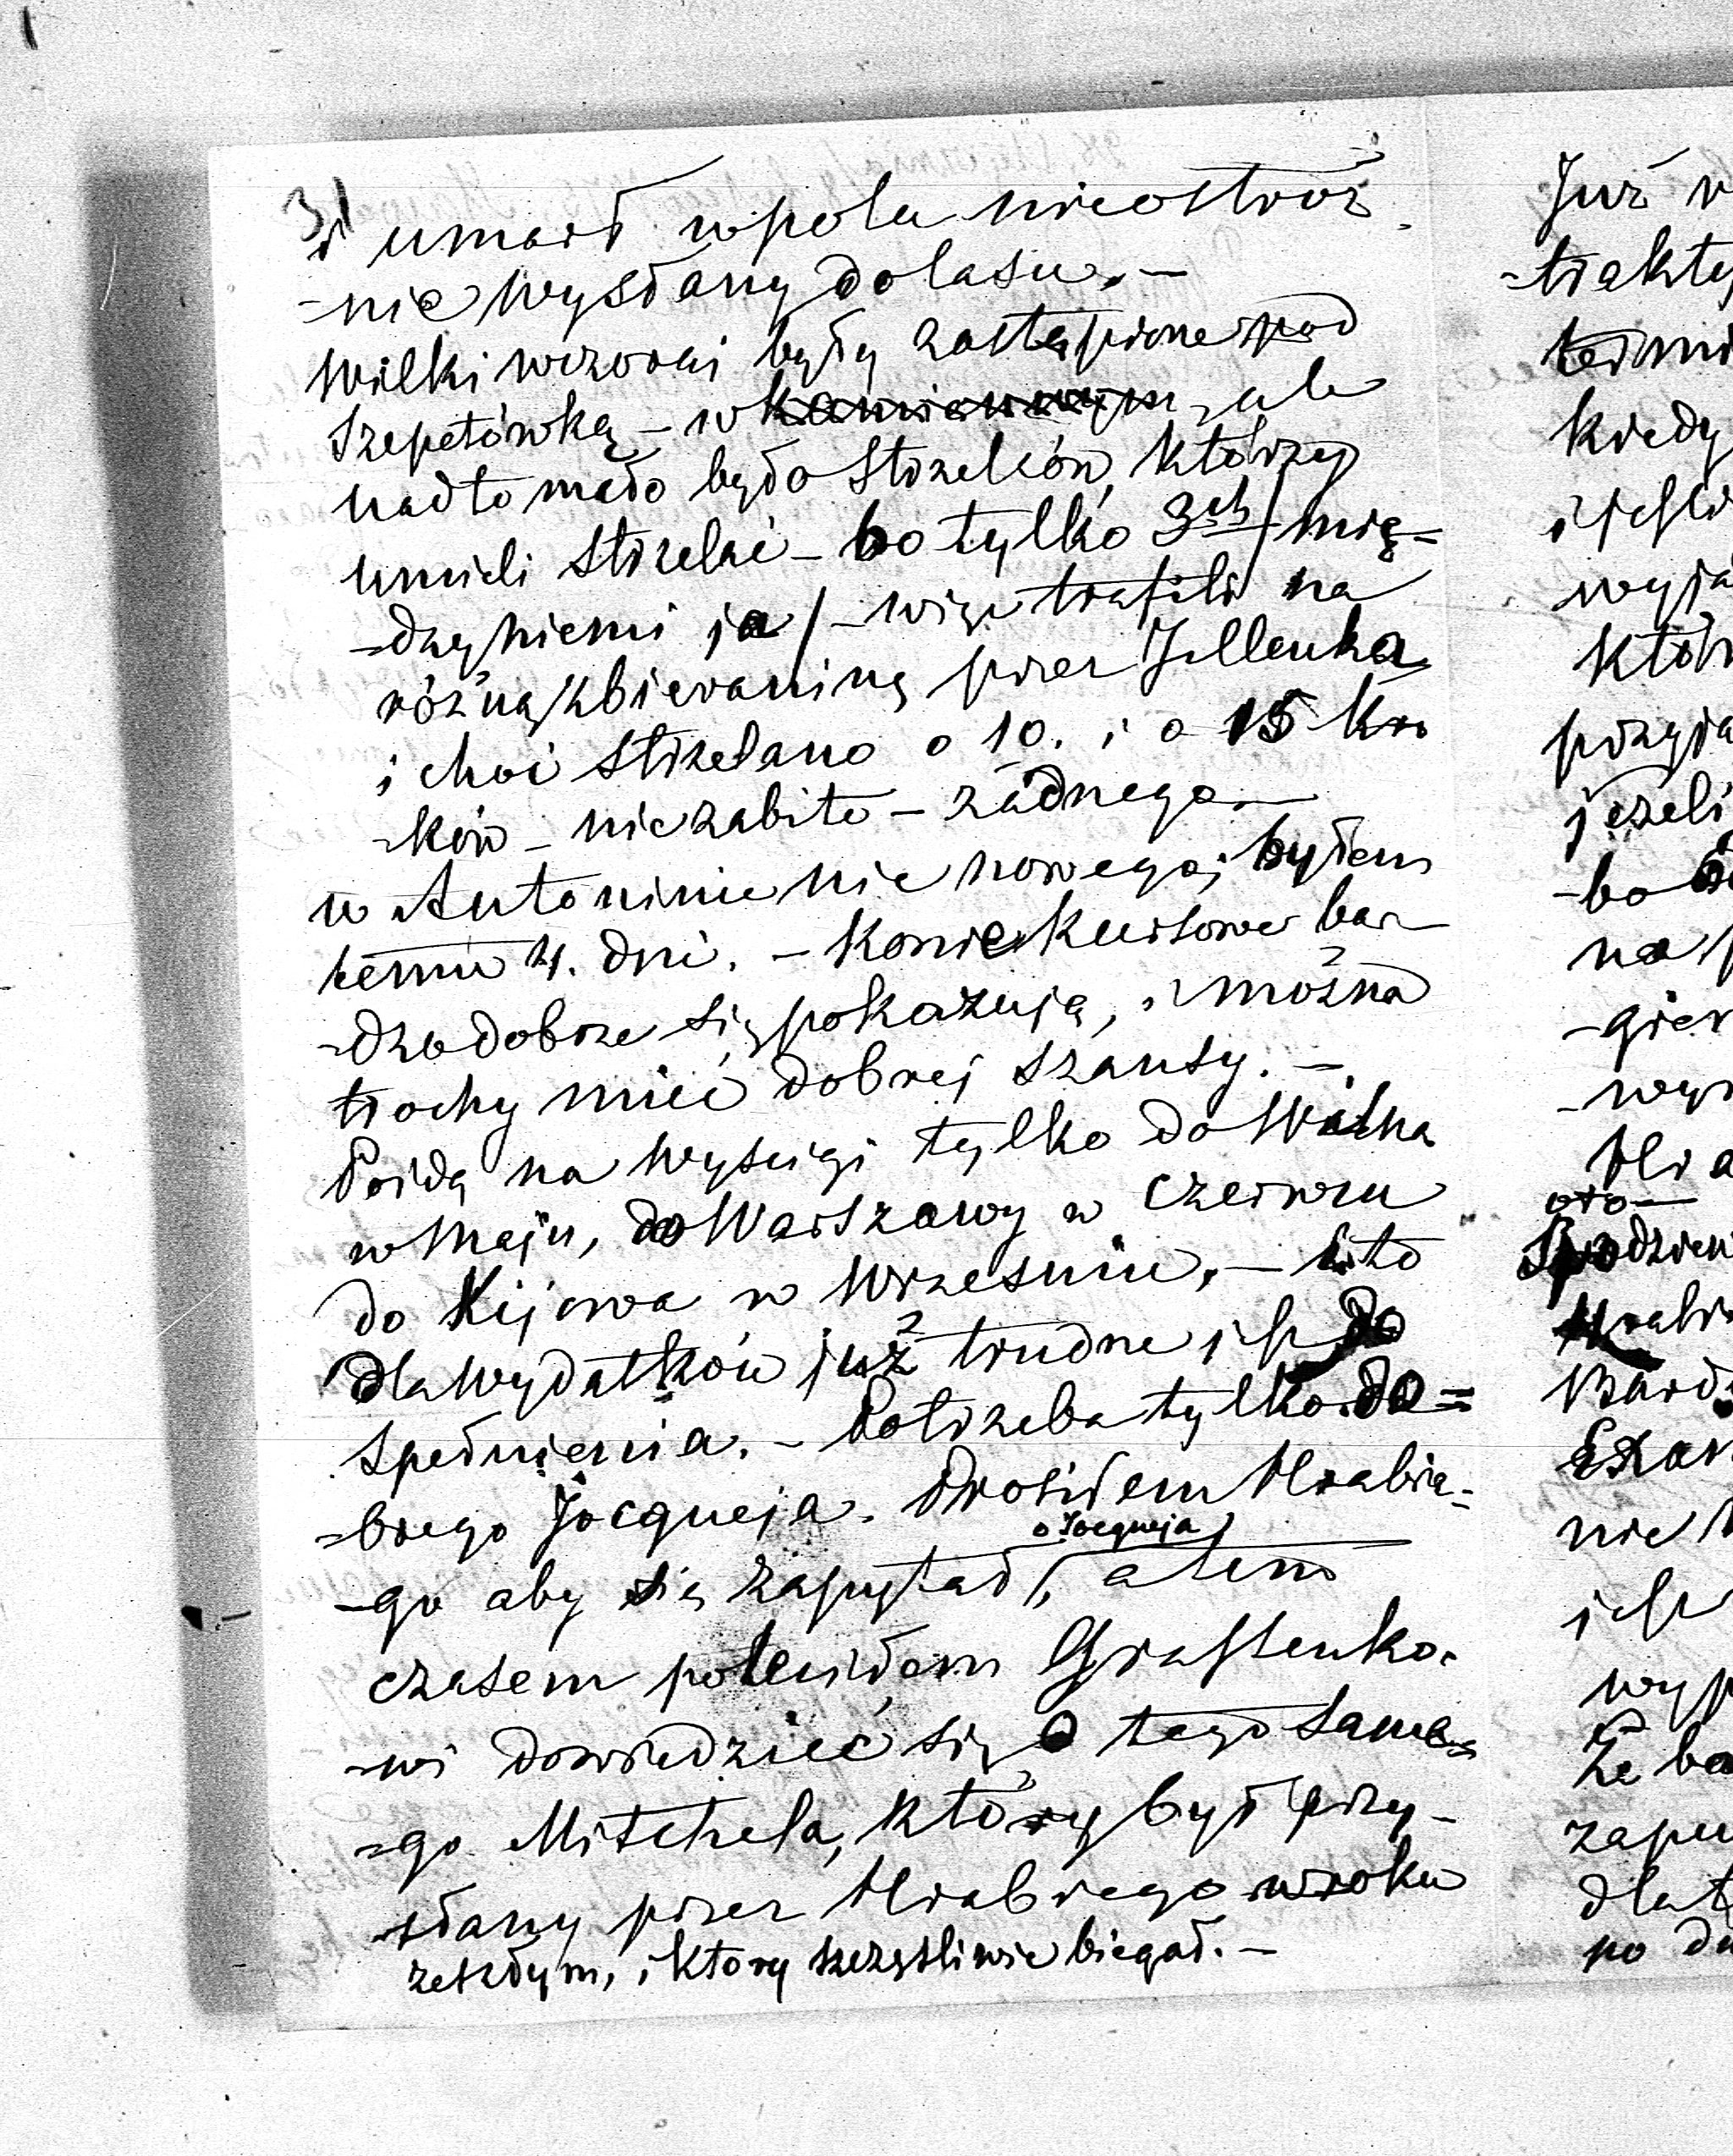 3)
i umarł w polu nieostroż-
-nie wysłany do lasu. -
Wilki wczoraj były zastąpione pod
Szepetówką - w ale
nadto mało było strzelców, którzy
umieli strzelać - bo tylko 3ch / mię-
-dzy niemi ja / - więc trafili na
różną zbieraninę przez Jellenka
i choć strzelano o 10. i o 15 kro
-ków - nie zabito - żadnego. -
w Antoninie nic nowego; byłem
temu 4. dni. - Konie kursowe bar-
-dzo dobrze się pokazują, i można
trochy mieć dobrej szansy. -
Pojdą na wyscigi tylko do Wilna
w Maju, do Warszawy w Czerwcu
do Kijowa w Wrzesniu. - i to
dla wydatków już trudne jest do
spełnienia. - Potrzeba tylko do=
=brego Jocqueja. Prosiłem Hrabie-
-go aby się zapytał, o Jocqueja a tem
czasem poleciłem Graffenko-
-wi dowiedzieć się o tego same-
-go Mitchela, który był przy-
-słany przez Hrabiego w roku
zeszłym, i który szczęśliwie biegał. -
Już
-trakty
kiedy
któr
przyja
jeżeli
-bo
na
-gier
-wyr
oto-
Spodziew
Hrabi
Bard
nie
jest
wyp
że ba
zapu
dla t
po du